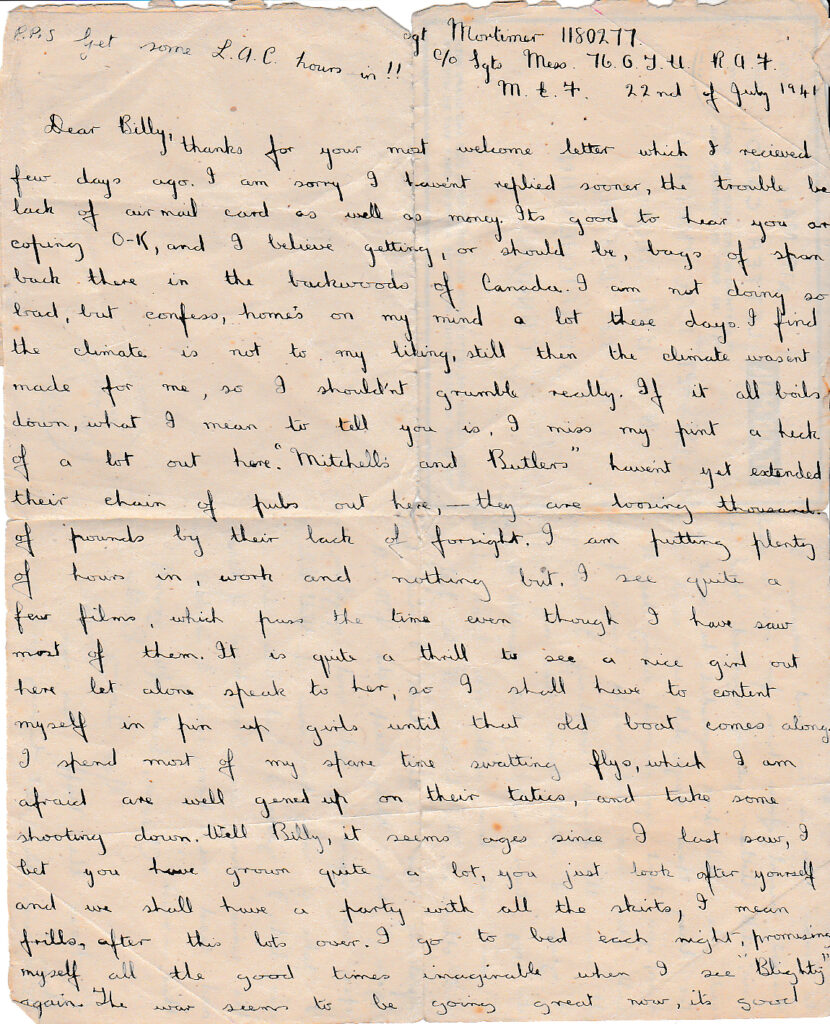 P.P.S Get some L.A.C. hours in!!
Sgt Mortimer 1180277.
c/o Sgts Mess. 76 O.T.U. R.A.F.
M.E.F. 22nd of July 1941
Dear Billy,
thanks for your most welcome letter which I recieved
few days ago. I am sorry I haven't replied sooner, the trouble be
lack of air mail card as well as money. Its good to hear you ar
coping O-K, and I believe getting, or should be, bags of span
back there in the backwoods of Canada. I am not doing so
bad, but confess, home's on my mind a lot these days. I find
the climate is not to my liking, still then the climate wasent
made for me, so I should'nt grumble really. If it all boils
down, what I mean to tell you is, I miss my pint a heck
of a lot out here. "Mitchells and Butlers" havent yet extended
their chain of pubs out here, — they are loosing thousand
of pounds by their lack of forsight. I am putting plenty
of hours in, work and nothing but. I see quite a
few films, which pass the time even though I have saw
most of them. It is quite a thrill to see a nice girl out
here let alone speak to her, so I shall have to content
myself in pin up girls until that old boat comes along
I spend most of my spare time swatting flys, which I am
afraid are well gened up on their tatics, and take some
shooting down. Well Billy, it seems ages since I last saw, I
bet you have grown quite a lot, you just look after yourself
and we shall have a party with all the skirts, I mean
frills, after this lots over. I go to bed each night, promising
myself all the good times imaginable when I see "Blighty"
again. The war seems to be going great now, its good